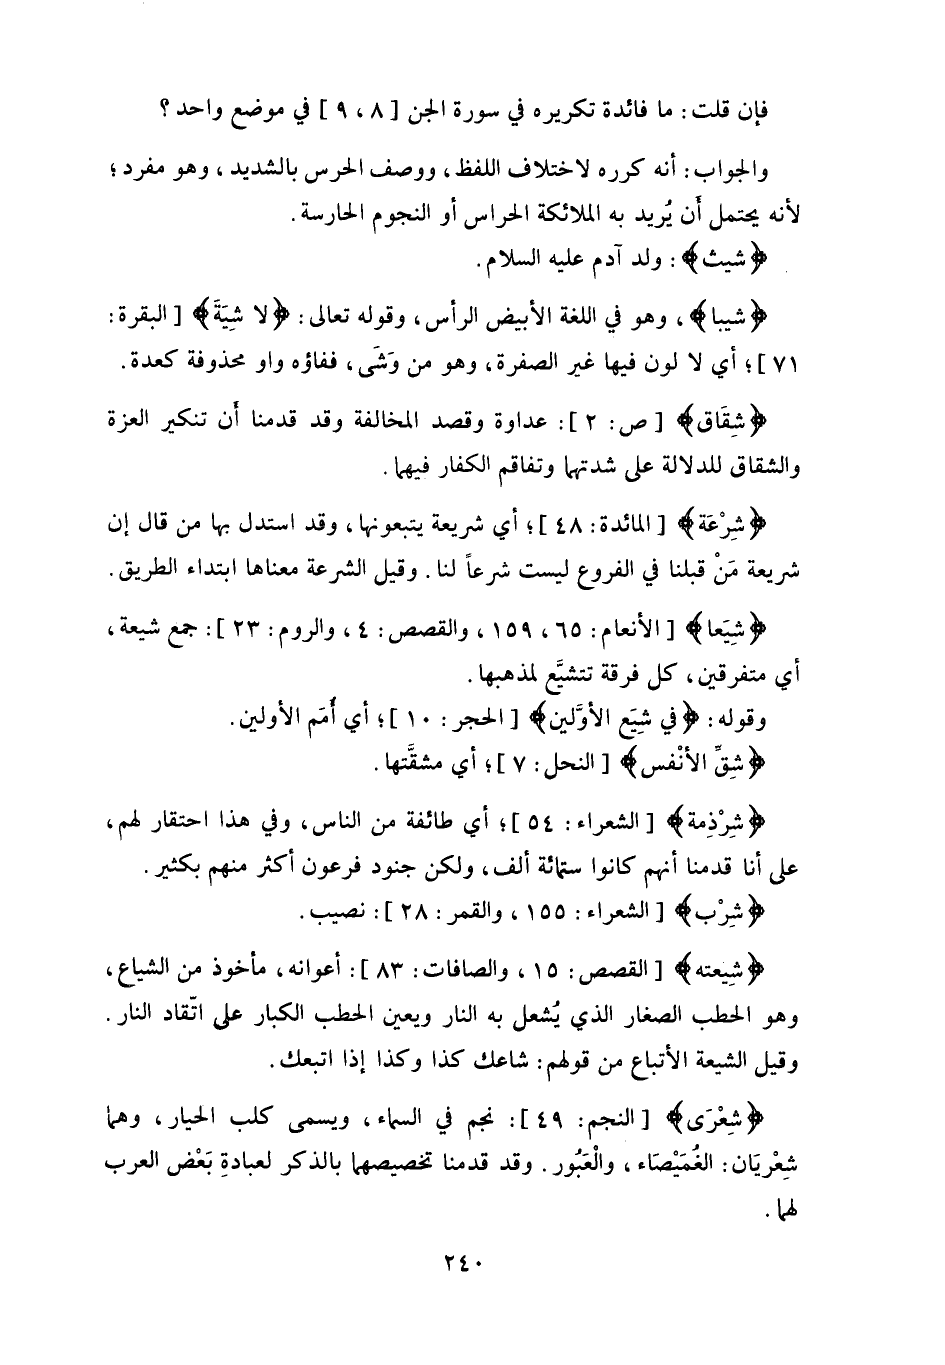 فإن قلت : ما فائدة تكريره في سورة الجن [ ٨ ، ٩ ] في موضع واحد ؟
والجواب : أنه كرره لاختلاف اللفظ ، ووصف الحرس بالشديد ، وهو مفرد ؛
لأنه يحتمل أَن يُريد به الملائكة الحراس أو النجوم الحارسة .
﴿شيث﴾ : ولد آدم عليه السلام .
﴿شيبا﴾ ، وهو في اللغة الأبيض الرأس ، وقوله تعالى : ﴿لا شِيَةَ﴾ [ البقرة :
٧١ ] ؛ أي لا لون فيها غير الصفرة ، وهو من وَشَى ، ففاؤه واو محذوفة كعدة .
﴿شِقَاق﴾ [ ص : ٢ ] : عداوة وقصد المخالفة وقد قدمنا أَن تنكير العزة
والشقاق للدلالة على شدتها وتفاقم الكفار فيهما .
﴿شِرْعَة﴾ [ المائدة : ٤٨ ] ؛ أي شريعة يتبعونها ، وقد استدل بها من قال إن
شريعة مَنْ قبلنا في الفروع ليست شرعاً لنا . وقيل الشرعة معناها ابتداء الطريق .
﴿شِيَعا﴾ [ الأنعام : ٦٥ ، ١٥٩ ، والقصص : ٤ ، والروم : ٢٣ ] : جمع شيعة ،
أي متفرقين ، كل فرقة تتشيَّع لمذهبها .
وقوله : ﴿في شِيَع الأوَّلين﴾ [ الحجر : ١٠ ] ؛ أي أُمَم الأولين .
﴿شِقِّ الأنْفس﴾ [ النحل : ٧ ] ؛ أي مشقَّتها .
﴿شِرْذِمة﴾ [ الشعراء : ٥٤ ] ؛ أي طائفة من الناس ، وفي هذا احتقار لهم ،
على أنا قدمنا أنهم كانوا ستمائة ألف ، ولكن جنود فرعون أكثر منهم بكثير .
﴿شِرْب﴾ [ الشعراء : ١٥٥ ، والقمر : ٢٨ ] : نصيب .
﴿شِيعته﴾ [ القصص : ١٥ ، والصافات : ٨٣ ] : أعوانه ، مأخوذ من الشياع ،
وهو الحطب الصغار الذي يُشعل به النار ويعين الحطب الكبار على اتّقاد النار .
وقيل الشيعة الأتباع من قولهم : شاعك كذا وكذا إذا اتبعك .
﴿شِعْرَى﴾ [ النجم : ٤٩ ] : نجم في السماء ، ويسمى كلب الحيار ، وهما
شِعْرِيَان : الغُمَيْصَاء ، والْعَبُور . وقد قدمنا تخصيصها بالذكر لعبادةِ بَعْض العرب
لهما .
٢٤٠